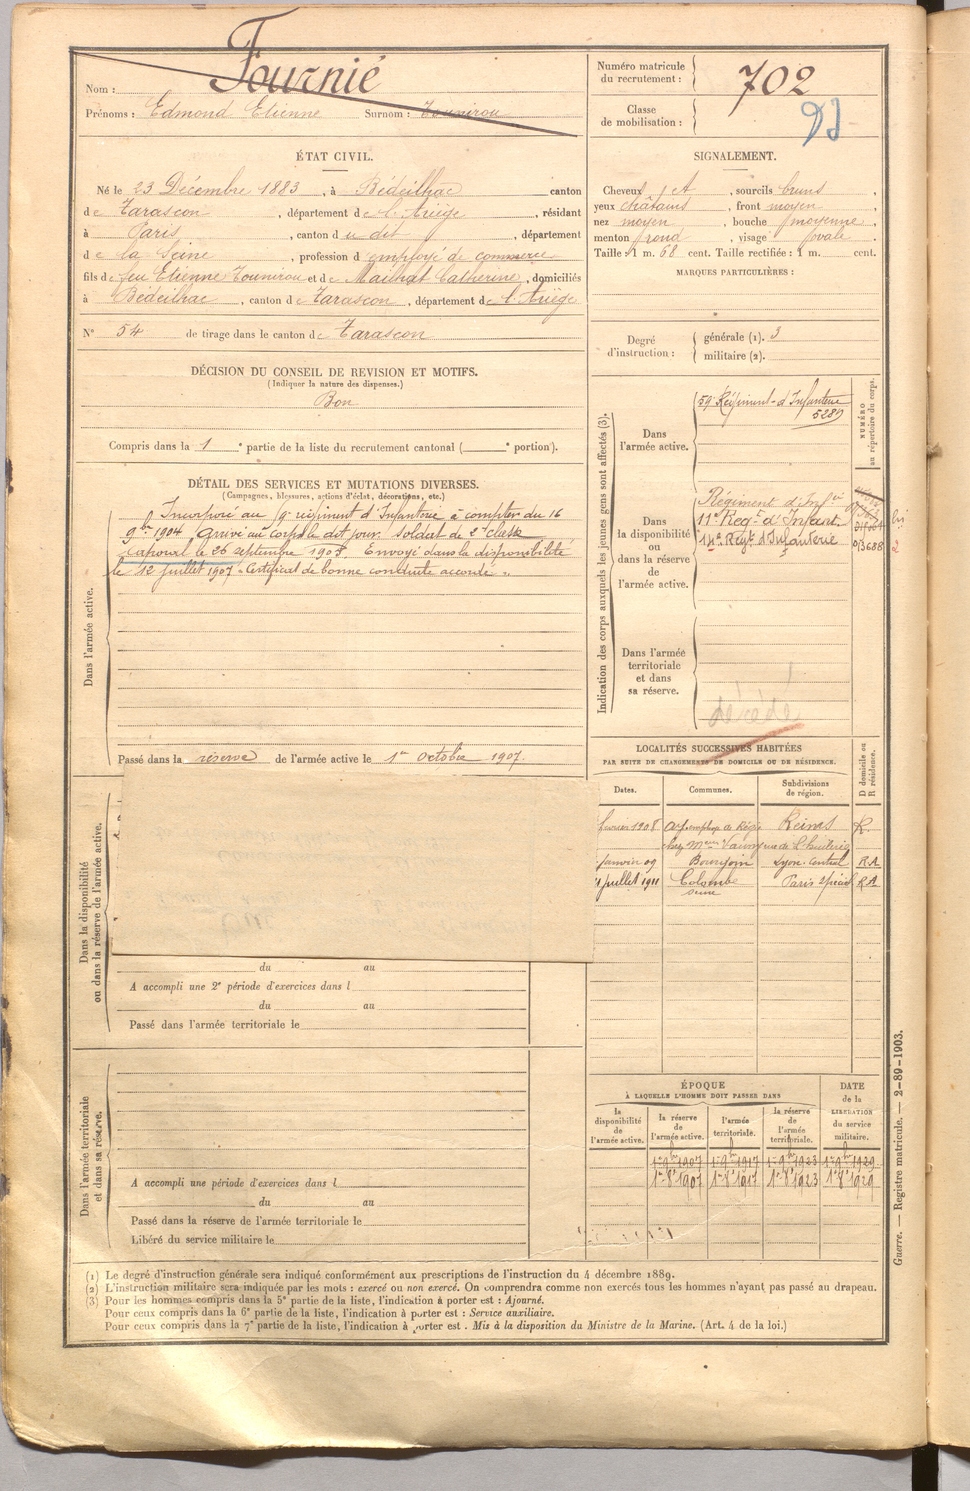 Nom : Fournié
Prénoms : Edmond Etienne Surnom : Tounirou
Numéro matricule du recrutement : 702
Classe de mobilisation :
ÉTAT CIVIL.
Né le 23 Décembre 1883, à Bédeilhac canton
de Tarascon, département de l'Ariège, résidant
à Paris, canton du dit, département
de la Seine, profession d'employé de commerce
fils de feu Etienne Tounirou et de Mailhat Catherine, domiciliés
à Bédeilhac, canton de Tarascon, département de l'Ariège
N° 54 de tirage dans le canton de Tarascon
SIGNALEMENT.
Cheveux et, sourcils bruns,
yeux châtains, front moyen,
nez moyen, bouche moyenne,
menton rond, visage ovale.
Taille : 1 m. 68 cent. Taille rectifiée : 1 m. cent.
MARQUES PARTICULIÈRES :
Degré d'instruction : générale (1). 3
militaire (2).
DÉCISION DU CONSEIL DE REVISION ET MOTIFS.
(Indiquer la nature des dispenses.)
Bon
Compris dans la 1e partie de la liste du recrutement cantonal ( e portion).
DÉTAIL DES SERVICES ET MUTATIONS DIVERSES.
(Campagnes, blessures, actions d'éclat, décorations, etc.)
Incorporé au régiment d'Infanterie à compter du 16
9bre 1904 Arrivé au corps le dit jour soldat de 2e classe
Caporal le 26 septembre 1905 Envoyé dans la disponibilité
le 12 juillet 1907 "Certificat de bonne conduite accordé".
Dans l'armée active.
Passé dans la réserve de l'armée active le 1er octobre 1907.
Indication des corps auxquels les jeunes gens sont affectés (3).
NUMÉRO au répertoire du corps.
Dans l'armée active.
59e Régiment d'Infanterie
5289
Dans la disponibilité ou dans la réserve de l'armée active.
Régiment d'Infie
11e Régt d'Infant.
14e Régt d'Infanterie 03608
Dans l'armée territoriale et dans sa réserve.
décédé
LOCALITÉS SUCCESSIVES HABITÉES
PAR SUITE DE CHANGEMENTS DE DOMICILE OU DE RÉSIDENCE.
D domicile ou R résidence.
Dates. Communes. Subdivisions de région.
février 1908 Reims R.
chez Mme
janvier 09 Bourgoin Lyon Central RA
juillet 1911 Colombe Seine Paris Spécial RA
Dans la disponibilité ou dans la réserve de l'armée active.
du au
A accompli une 2e période d'exercices dans l
du au
Passé dans l'armée territoriale le
Dans l'armée territoriale et dans sa réserve.
A accompli une période d'exercices dans l
du au
Passé dans la réserve de l'armée territoriale le
Libéré du service militaire le
ÉPOQUE
À LAQUELLE L'HOMME DOIT PASSER DANS
DATE de la LIBÉRATION du service militaire.
la disponibilité de l'armée active.
la réserve de l'armée active.
l'armée territoriale.
la réserve de l'armée territoriale.
1er 9bre 1907 1er 9bre 1917 1er 9bre 1923 1er 9bre 1929
1er 8e 1907 1er 8e 1917 1er 8e 1923 1er 8e 1929
(1) Le degré d'instruction générale sera indiqué conformément aux prescriptions de l'instruction du 4 décembre 1889.
(2) L'instruction militaire sera indiquée par les mots : exercé ou non exercé. On comprendra comme non exercés tous les hommes n'ayant pas passé au drapeau.
(3) Pour les hommes compris dans la 5e partie de la liste, l'indication à porter est : Ajourné.
Pour ceux compris dans la 6e partie de la liste, l'indication à porter est : Service auxiliaire.
Pour ceux compris dans la 7e partie de la liste, l'indication à porter est : Mis à la disposition du Ministre de la Marine. (Art. 4 de la loi.)
Guerre. — Registre matricule. — 2-89-1903.